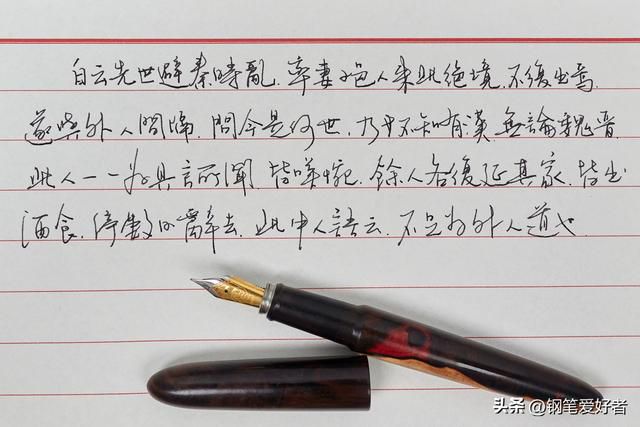 自云先世避秦時亂.率妻子邑人来此絶境.不復出焉.
遂與外人間隔.問今是何世.乃不知有漢.無論魏晋.
此人一一為具言所聞.皆嘆惋.餘人各復延其家.皆出
酒食.停數日辭去.此中人語云.不足为外人道也.
头条 @钢笔爱好者